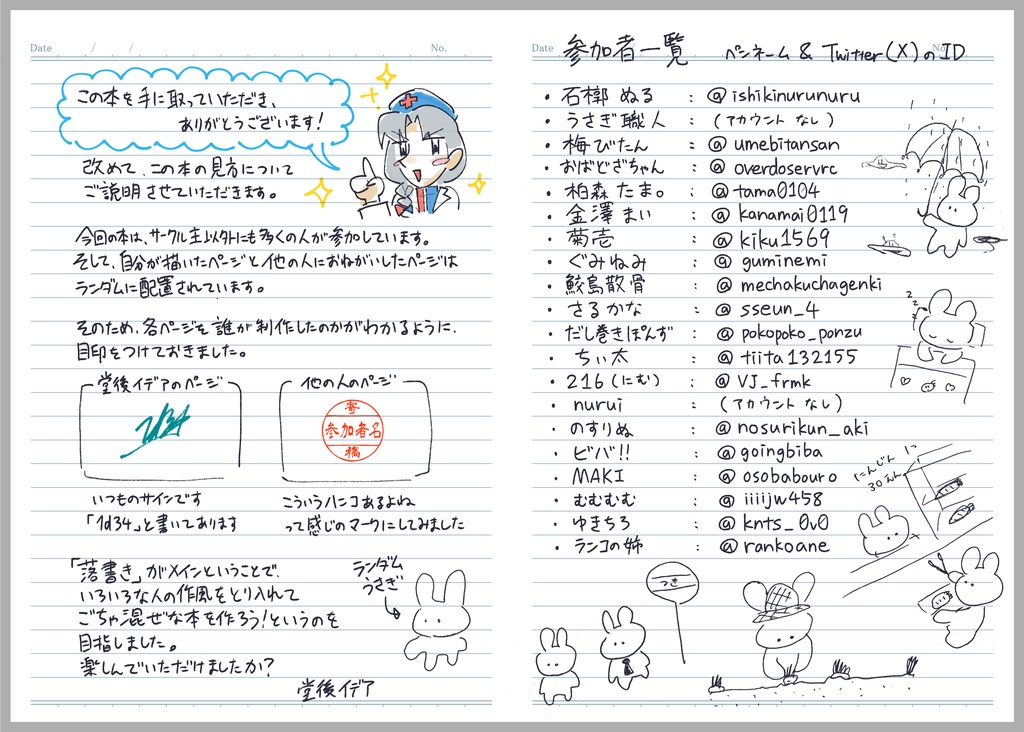 Date / / No.
この本を手に取っていただき、
ありがとうございます!
改めて、この本の見方について
ご説明させていただきます。
今回の本は、サークル主以外にも多くの人が参加しています。
そして、自分が描いたページと他の人におねがいしたページは
ランダムに配置されています。
そのため、各ページを誰が制作したのかがわかるように、
目印をつけておきました。
堂後イデアのページ
1d34
いつものサインです
「1d34」と書いてあります
他の人のページ
寄
参加者名
稿
こういうハンコあるよね
って感じのマークにしてみました
「落書き」がメインということで、
いろいろな人の作風をとり入れて
ごちゃ混ぜな本を作ろう!というのを
目指しました。
楽しんでいただけましたか?
堂後イデア
ランダム
うさぎ
Date No.
参加者一覧 ペンネーム & Twitter(X)のID
・石槨 ぬる : @ishikinurunuru
・うさぎ職人 : (アカウント なし)
・梅びたん : @umebitansan
・おばどざちゃん : @overdoservrc
・柏森 たま。 : @tama0104
・金澤 まい : @kanamai0119
・菊壱 : @kiku1569
・ぐみねみ : @guminemi
・鮫島散骨 : @mechakuchagenki
・さるかな : @sseun_4
・だし巻きぽんず : @pokopoko_ponzu
・ちぃ太 : @tiita132155
・216(にむ) : @VJ_frmk
・nurui : (アカウント なし)
・のすりぬ : @nosurikun_aki
・ビバ!! : @goingbiba
・MAKI : @osobabouro
・むむむむ : @iiiijw458
・ゆきちろ : @knts_0v0
・ランコの姉 : @rankoane
z z z
にんじん 1つ
30えん
つき